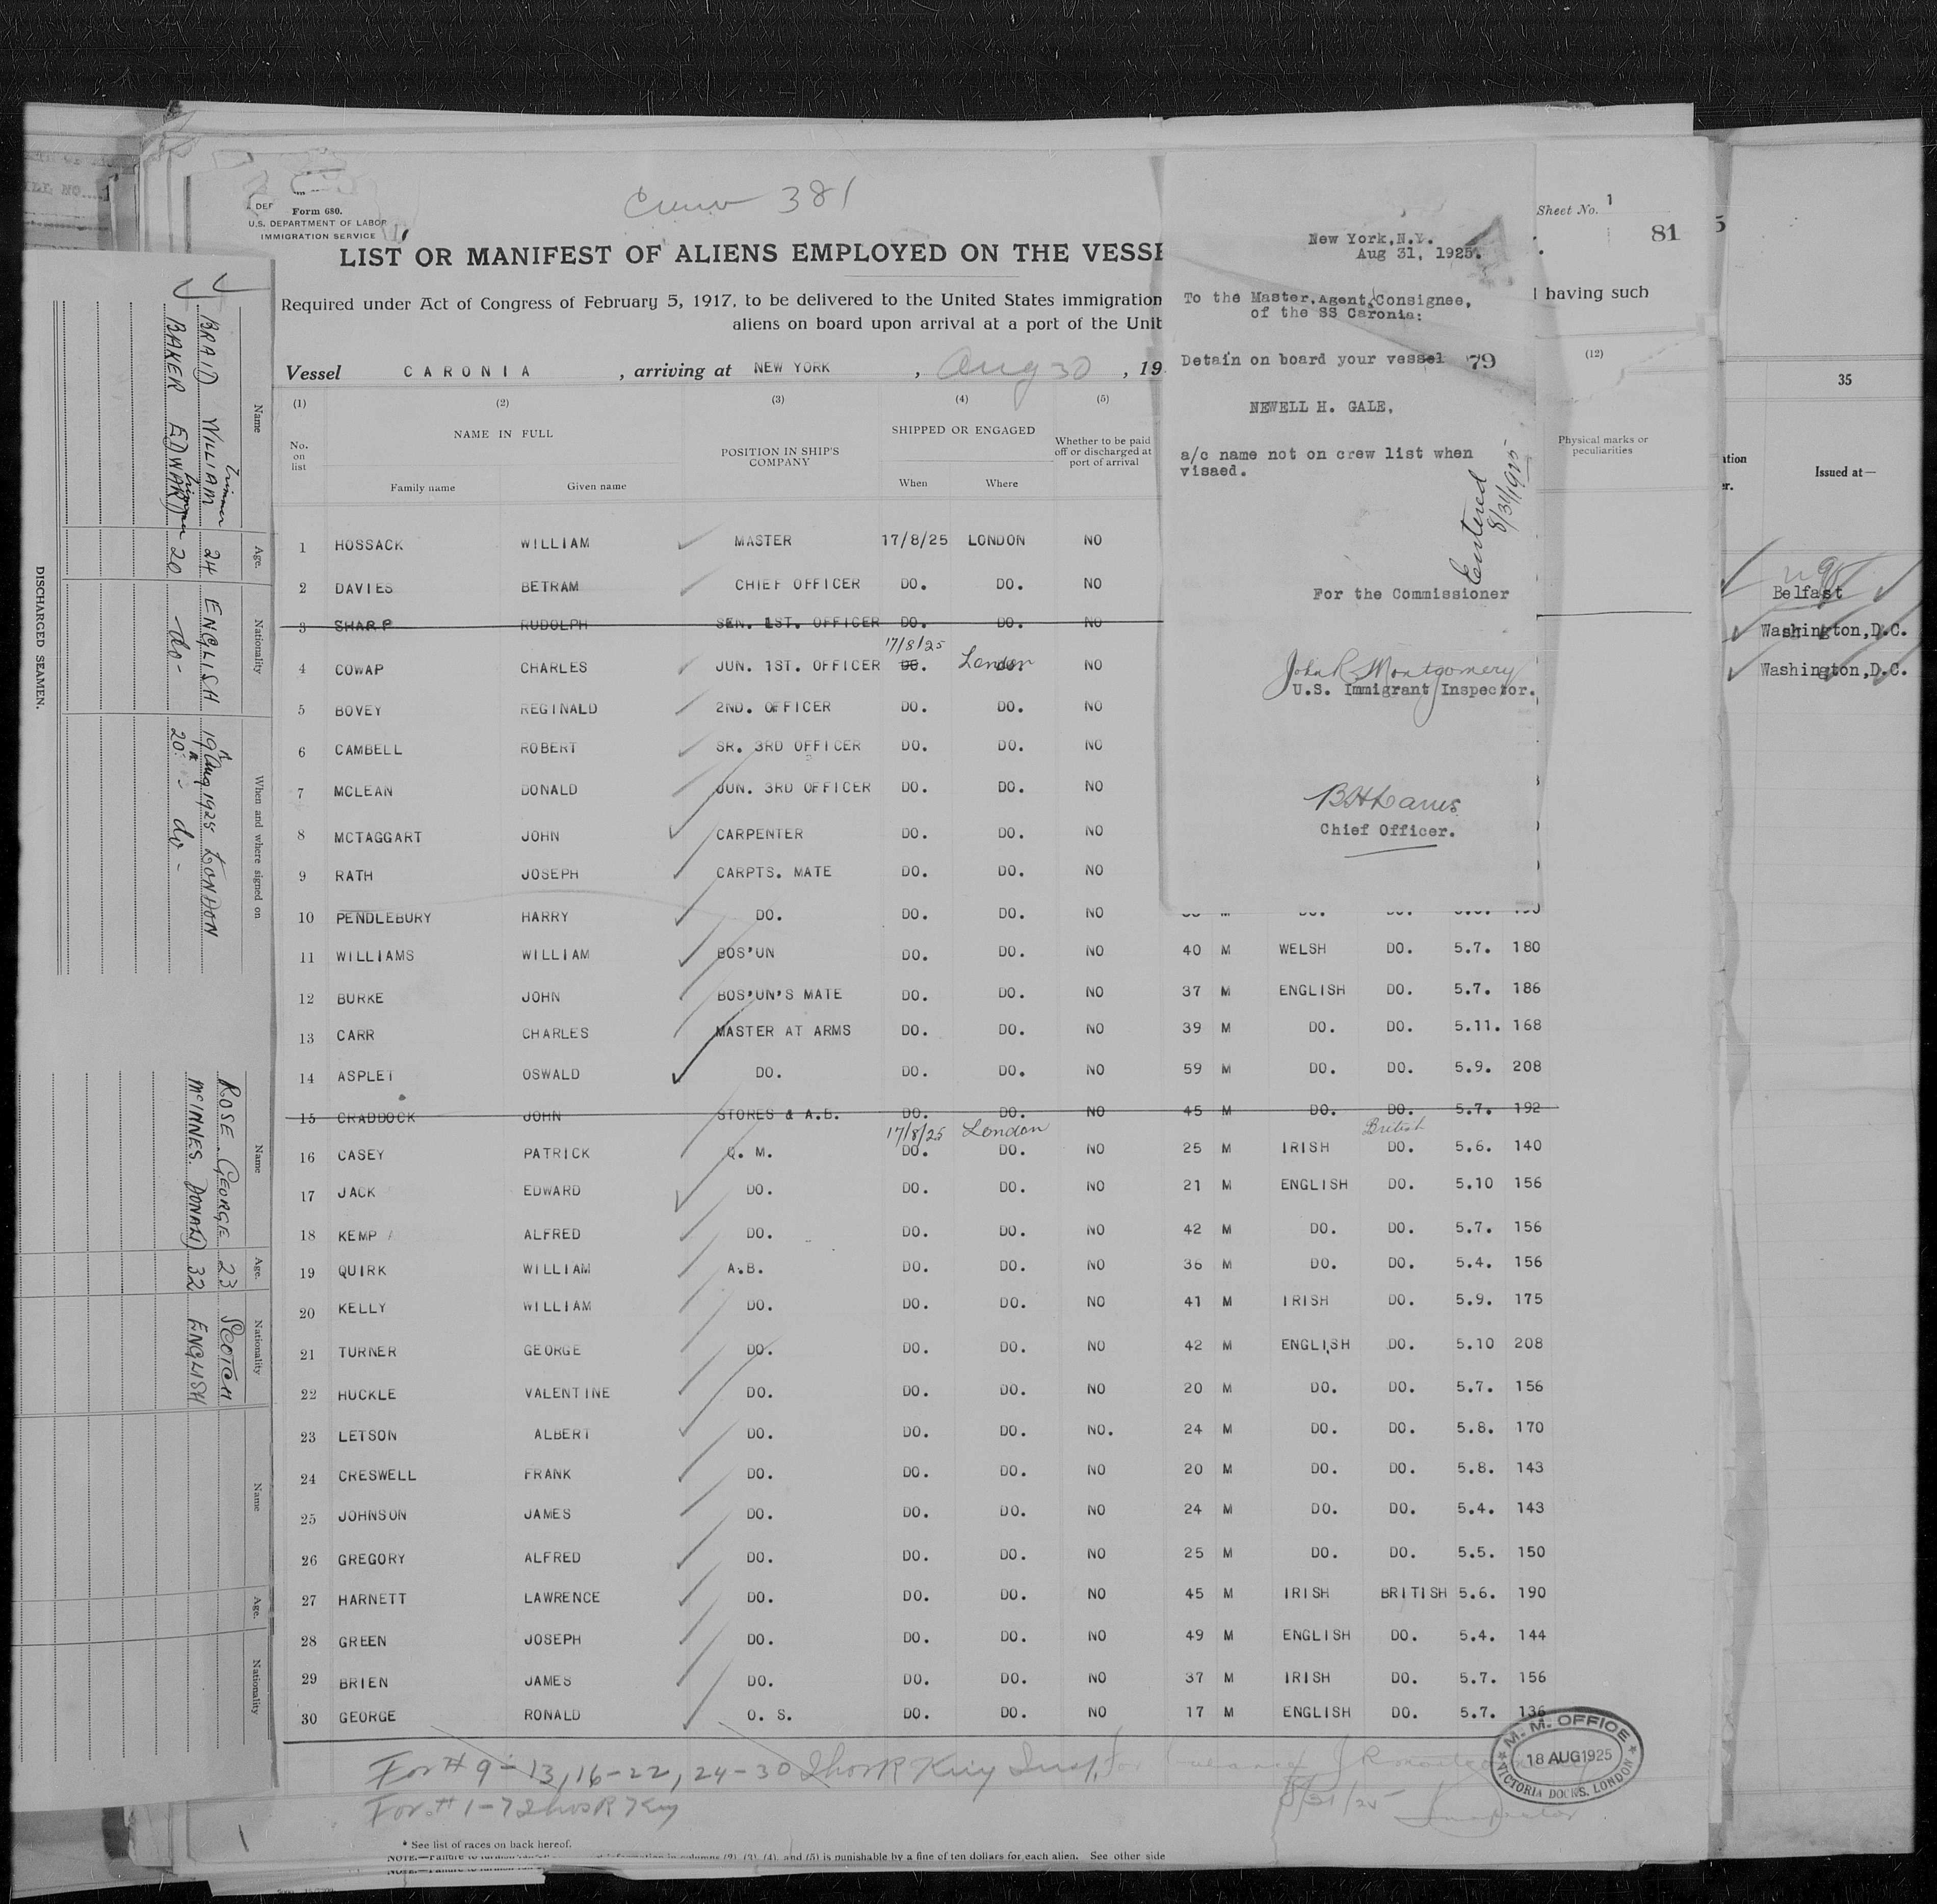 Crew 381
Form 680.
U.S. DEPARTMENT OF LABOR
IMMIGRATION SERVICE
LIST OR MANIFEST OF ALIENS EMPLOYED ON THE VESSE
Required under Act of Congress of February 5, 1917, to be delivered to the United States immigration
aliens on board upon arrival at a port of the Unit
Vessel CARONIA, arriving at NEW YORK, Aug 30, 19
Sheet No. 1
81
5
l having such
(1) (2) (3) (4) (5)
No. on list
NAME IN FULL
Family name Given name
POSITION IN SHIP'S COMPANY
SHIPPED OR ENGAGED
When Where
Whether to be paid off or discharged at port of arrival
(12)
Physical marks or peculiarities
1 HOSSACK WILLIAM MASTER 17/8/25 LONDON NO
2 DAVIES BETRAM CHIEF OFFICER DO. DO. NO
3 SHARP RUDOLPH SEN. 1ST. OFFICER DO. DO. NO
17/8/25
4 COWAP CHARLES JUN. 1ST. OFFICER DO. London NO
5 BOVEY REGINALD 2ND. OFFICER DO. DO. NO
6 CAMBELL ROBERT SR. 3RD OFFICER DO. DO. NO
7 MCLEAN DONALD JUN. 3RD OFFICER DO. DO. NO
8 MCTAGGART JOHN CARPENTER DO. DO. NO
9 RATH JOSEPH CARPTS. MATE DO. DO. NO
10 PENDLEBURY HARRY DO. DO. DO. NO
11 WILLIAMS WILLIAM BOS'UN DO. DO. NO 40 M WELSH DO. 5.7. 180
12 BURKE JOHN BOS'UN'S MATE DO. DO. NO 37 M ENGLISH DO. 5.7. 186
13 CARR CHARLES MASTER AT ARMS DO. DO. NO 39 M DO. DO. 5.11. 168
14 ASPLET OSWALD DO. DO. DO. NO 59 M DO. DO. 5.9. 208
15 CRADDOCK JOHN STORES & A.B. DO. DO. NO 45 M DO. DO. 5.7. 192
17/8/25 London British
16 CASEY PATRICK Q. M. DO. DO. NO 25 M IRISH DO. 5.6. 140
17 JACK EDWARD DO. DO. DO. NO 21 M ENGLISH DO. 5.10 156
18 KEMP ALFRED DO. DO. DO. NO 42 M DO. DO. 5.7. 156
19 QUIRK WILLIAM A.B. DO. DO. NO 36 M DO. DO. 5.4. 156
20 KELLY WILLIAM DO. DO. DO. NO 41 M IRISH DO. 5.9. 175
21 TURNER GEORGE DO. DO. DO. NO 42 M ENGLISH DO. 5.10 208
22 HUCKLE VALENTINE DO. DO. DO. NO 20 M DO. DO. 5.7. 156
23 LETSON ALBERT DO. DO. DO. NO. 24 M DO. DO. 5.8. 170
24 CRESWELL FRANK DO. DO. DO. NO 20 M DO. DO. 5.8. 143
25 JOHNSON JAMES DO. DO. DO. NO 24 M DO. DO. 5.4. 143
26 GREGORY ALFRED DO. DO. DO. NO 25 M DO. DO. 5.5. 150
27 HARNETT LAWRENCE DO. DO. DO. NO 45 M IRISH BRITISH 5.6. 190
28 GREEN JOSEPH DO. DO. DO. NO 49 M ENGLISH DO. 5.4. 144
29 BRIEN JAMES DO. DO. DO. NO 37 M IRISH DO. 5.7. 156
30 GEORGE RONALD O. S. DO. DO. NO 17 M ENGLISH DO. 5.7. 136
For # 9-13, 16-22, 24-30 Insp. for
For # 1-7
8/31/25 Inspector
M. M. OFFICE
18 AUG 1925
VICTORIA DOCKS. LONDON
* See list of races on back hereof.
(2), (3), (4), and (5) is punishable by a fine of ten dollars for each alien. See other side
New York, N.Y.
Aug 31, 1925.
To the Master, Agent, Consignee,
of the SS Caronia:
Detain on board your vessel 79
NEWELL H. GALE,
a/c name not on crew list when
visaed.
Entered
8/31/1925
For the Commissioner
John R. Montgomery
U.S. Immigrant Inspector.
Chief Officer.
35
Issued at—
Belfast
Washington, D.C.
Washington, D.C.
DISCHARGED SEAMEN.
Name Age. Nationality When and where signed on
BRAID WILLIAM Trimmer 24 ENGLISH 19th Aug 1925 LONDON
BAKER EDWARD Trimmer 20 -do- 20th do-
Name Age. Nationality
ROSE. GEORGE 23 SCOTCH
McINNES. DONALD 32 ENGLISH
Name Age. Nationality